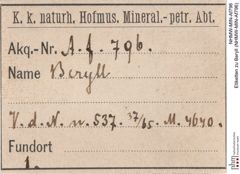 K. k. naturh. Hofmus. Mineral.-petr. Abt.
Akq.-Nr. A. f. 796.
Name Beryll
V. d. N. n. 537. 37/65. M. 4640.
Fundort
1.
NHMW-MIN-Af796
Etiketten zu Beryll (NHMW-MIN-Af796)
nhm